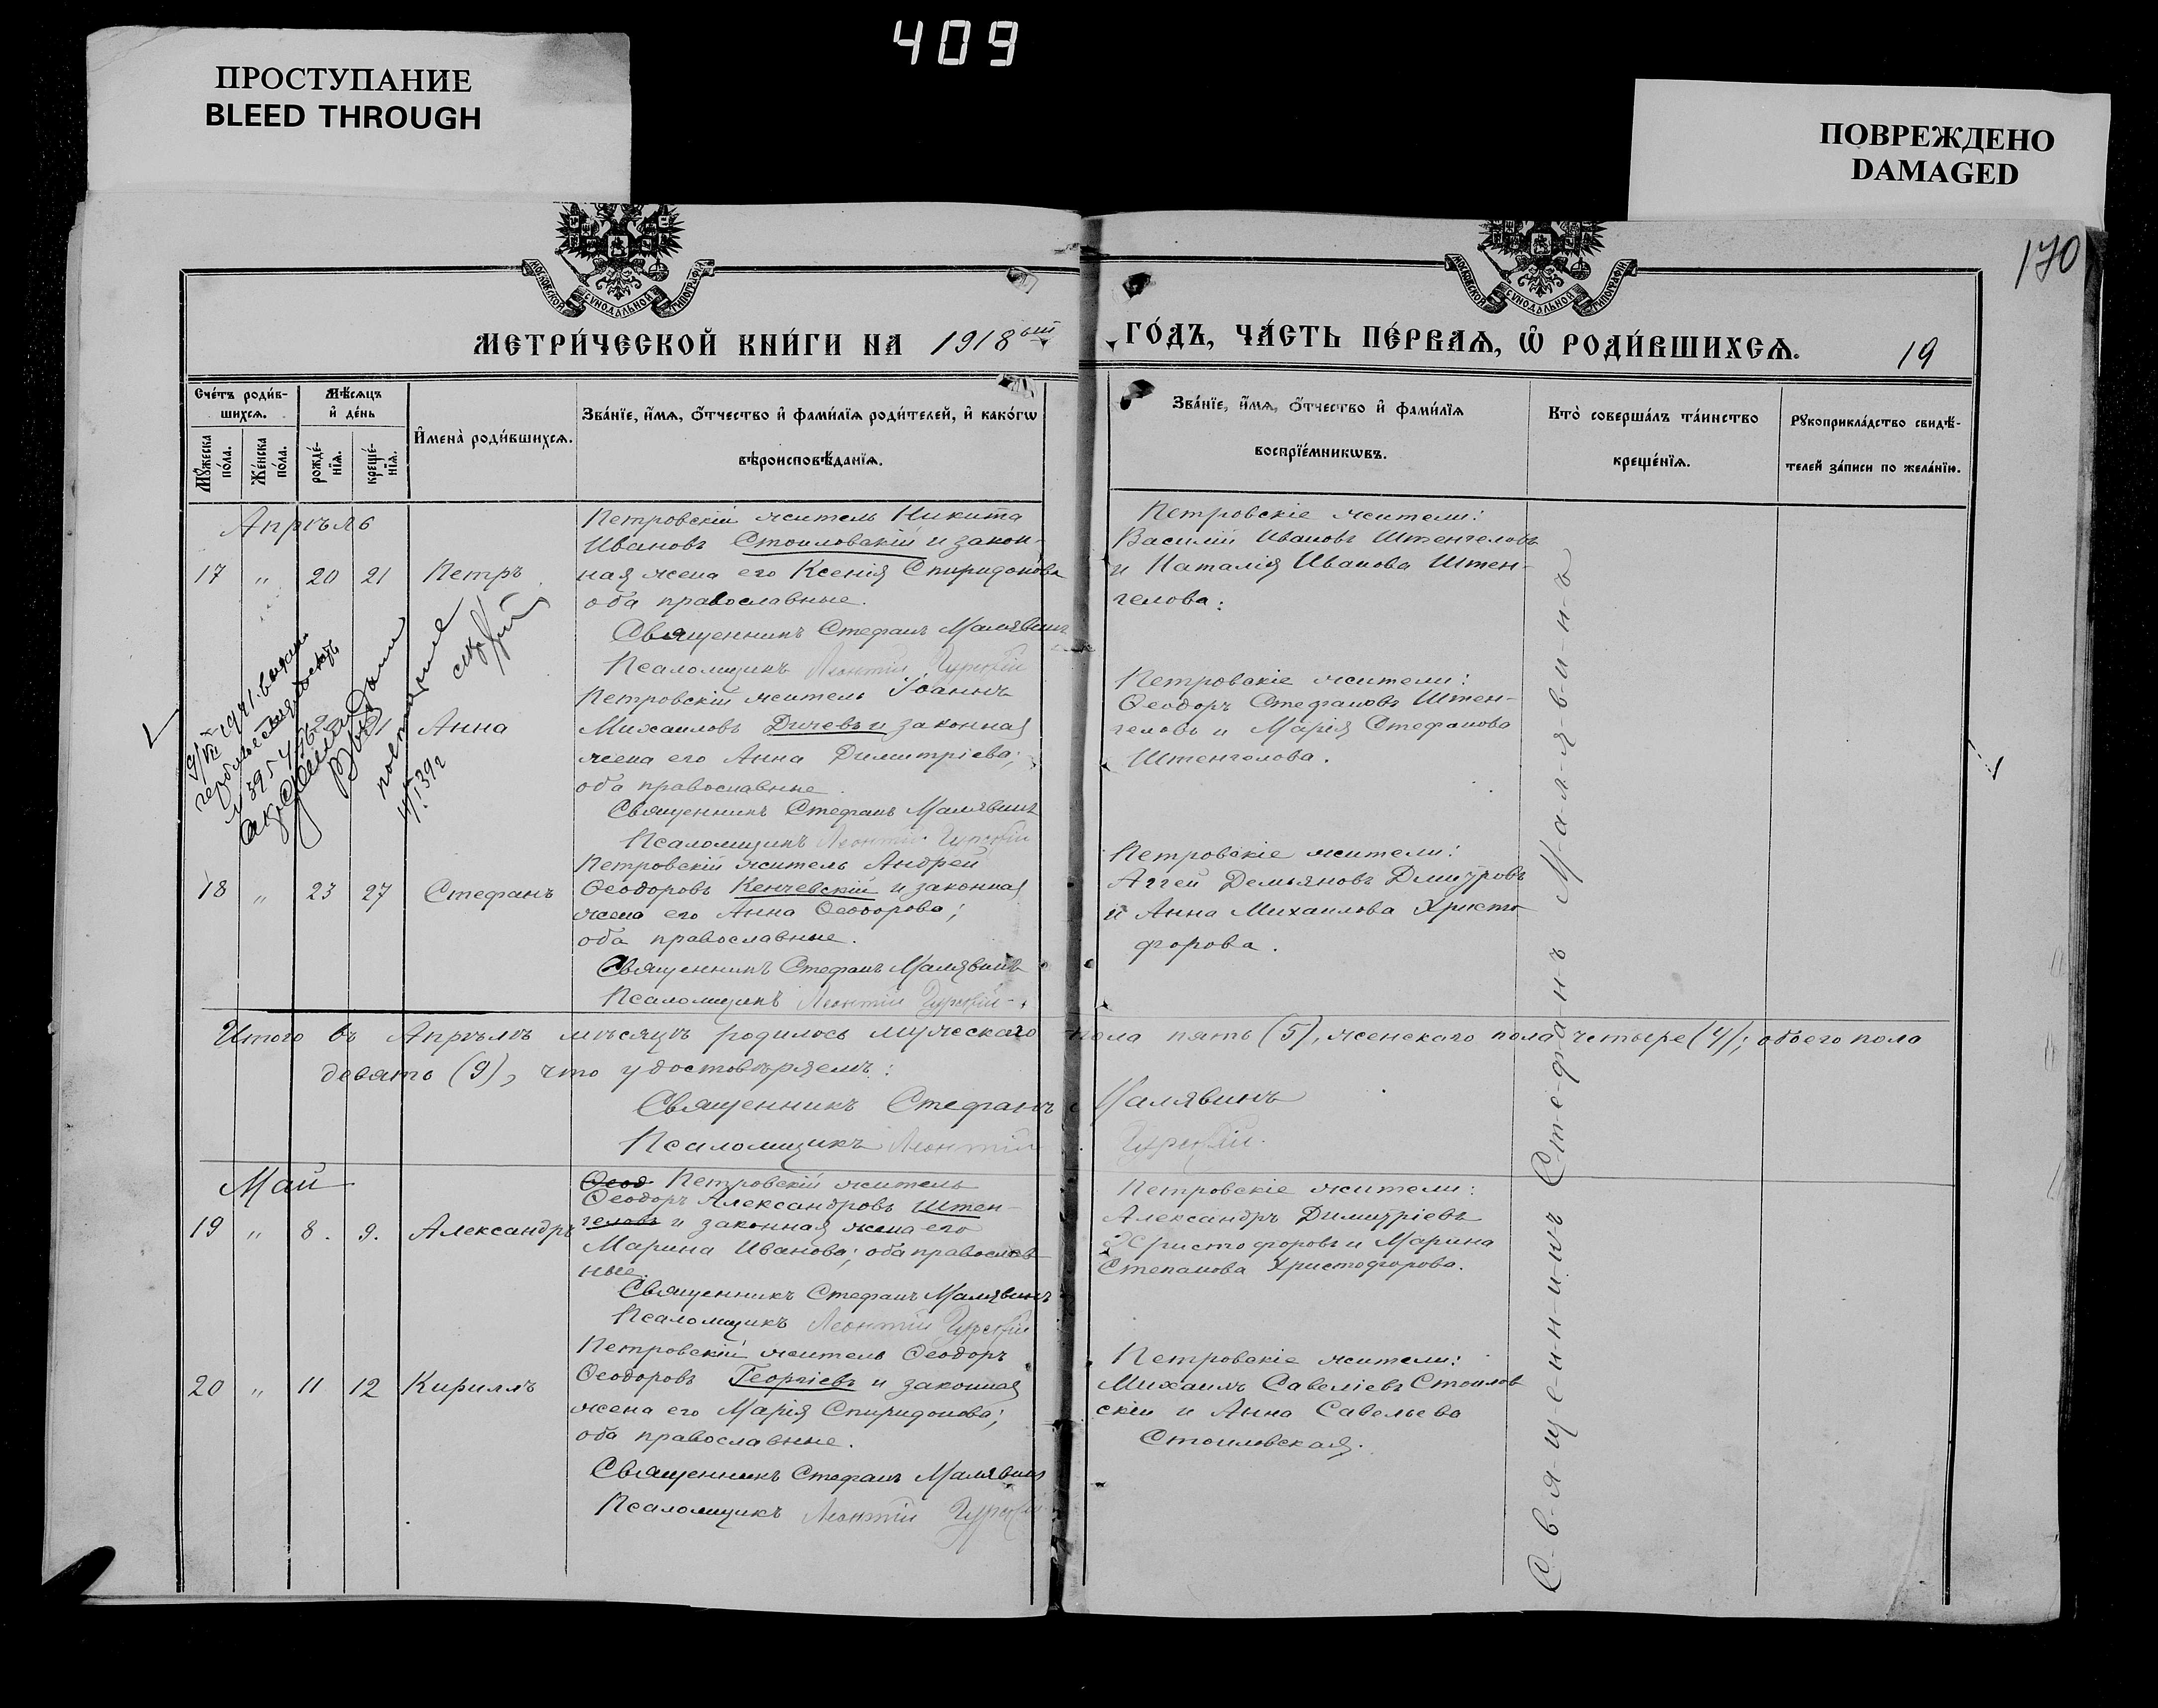 409
ПРОСТУПАНИЕ
BLEED THROUGH
ПОВРЕЖДЕНО
DAMAGED
170
МОСКОВСКОЙ СѴНОДАЛЬНОЙ ТИПОГРАФІИ
МОСКОВСКОЙ СѴНОДАЛЬНОЙ ТИПОГРАФІИ
МЕТРИ́ЧЕСКОЙ КНИ́ГИ НА 1918ый
ГО́ДЪ, ЧА́СТЬ ПЕ́РВАѦ, Ѽ РОДИ́ВШИХСѦ.
19
Сче́тъ роди́в-
шихсѧ.
Мѣ́сѧцъ
и҆ де́нь
Мꙋ́жеска
по́ла.
Же́нска
по́ла.
рожде́-
нїѧ.
креще́-
нїѧ.
И҆мена̀ роди́вшихсѧ.
Зва́нїе, и҆́мѧ, ѻ҆́тчество и҆ фами́лїѧ роди́телей, и҆ како́гѡ
вѣроисповѣ́данїѧ.
Зва́нїе, и҆́мѧ, ѻ҆́тчество и҆ фами́лїѧ
воспрїе́мникѡвъ.
Кто̀ соверша́лъ та́инство
креще́нїѧ.
Рꙋкоприкла́дство свидѣ́-
телей за́писи по жела́нїю.
Апрѣль
17 " 20 21 Петръ
Петровскій житель Никита
Ивановъ Стоиловскій и закон-
ная жена его Ксенія Спиридонова
оба православные.
Священникъ Стефанъ Малявинъ
Псаломщикъ Леонтій Гурскій
Петровскіе жители:
Василій Ивановъ Штенгеловъ
и Наталія Иванова Штен-
гелова:
Анна
Петровскій житель Іоаннъ
Михаиловъ Дичевъ и законная
жена его Анна Димитріева;
оба православные.
Священникъ Стефанъ Малявинъ
Псаломщикъ Леонтій Гурскій
Петровскіе жители:
Ѳеодоръ Стефановъ Штен-
геловъ и Марія Стефанова
Штенгелова.
18 " 23 27 Стефанъ
Петровскій житель Андрей
Ѳеодоровъ Кенчевскій и законная
жена его Анна Ѳеодорова;
оба православные.
Священникъ Стефанъ Малявинъ
Псаломщикъ Леонтій Гурскій
Петровскіе жители:
Аггей Демьяновъ Дмитровъ
и Анна Михаилова Христо
форова.
Итого въ Апрѣлѣ мѣсяцѣ родилось мужескаго пола пять (5), женскаго пола четыре (4); обоего пола
девять (9), что удостовѣряемъ:
Священникъ Стефанъ Малявинъ
Псаломщикъ Леонтій Гурскій.
Май
19 " 8. 9. Александръ
Ѳеод Петровскій житель
Ѳеодоръ Александровъ Штен-
геловъ и законная жена его
Марина Иванова; оба православ-
ные.
Священникъ Стефанъ Малявинъ
Псаломщикъ Леонтій Гурскій
Петровскіе жители:
Александръ Димитріевъ
Христофоровъ и Марина
Степанова Христофорова.
20 " 11 12 Кириллъ
Петровскій житель Ѳеодоръ
Ѳеодоровъ Георгіевъ и законная
жена его Марія Спиридонова;
оба православные.
Священникъ Стефанъ Малявинъ
Псаломщикъ Леонтій Гурскій
Петровскіе жители:
Михаилъ Савеліевъ Стоилов
скій и Анна Савельева
Стоиловская.
С-в-я-щ-е-н-н-и-к-ъ С-т-е-ф-а-н-ъ М-а-л-я-в-и-н-ъ